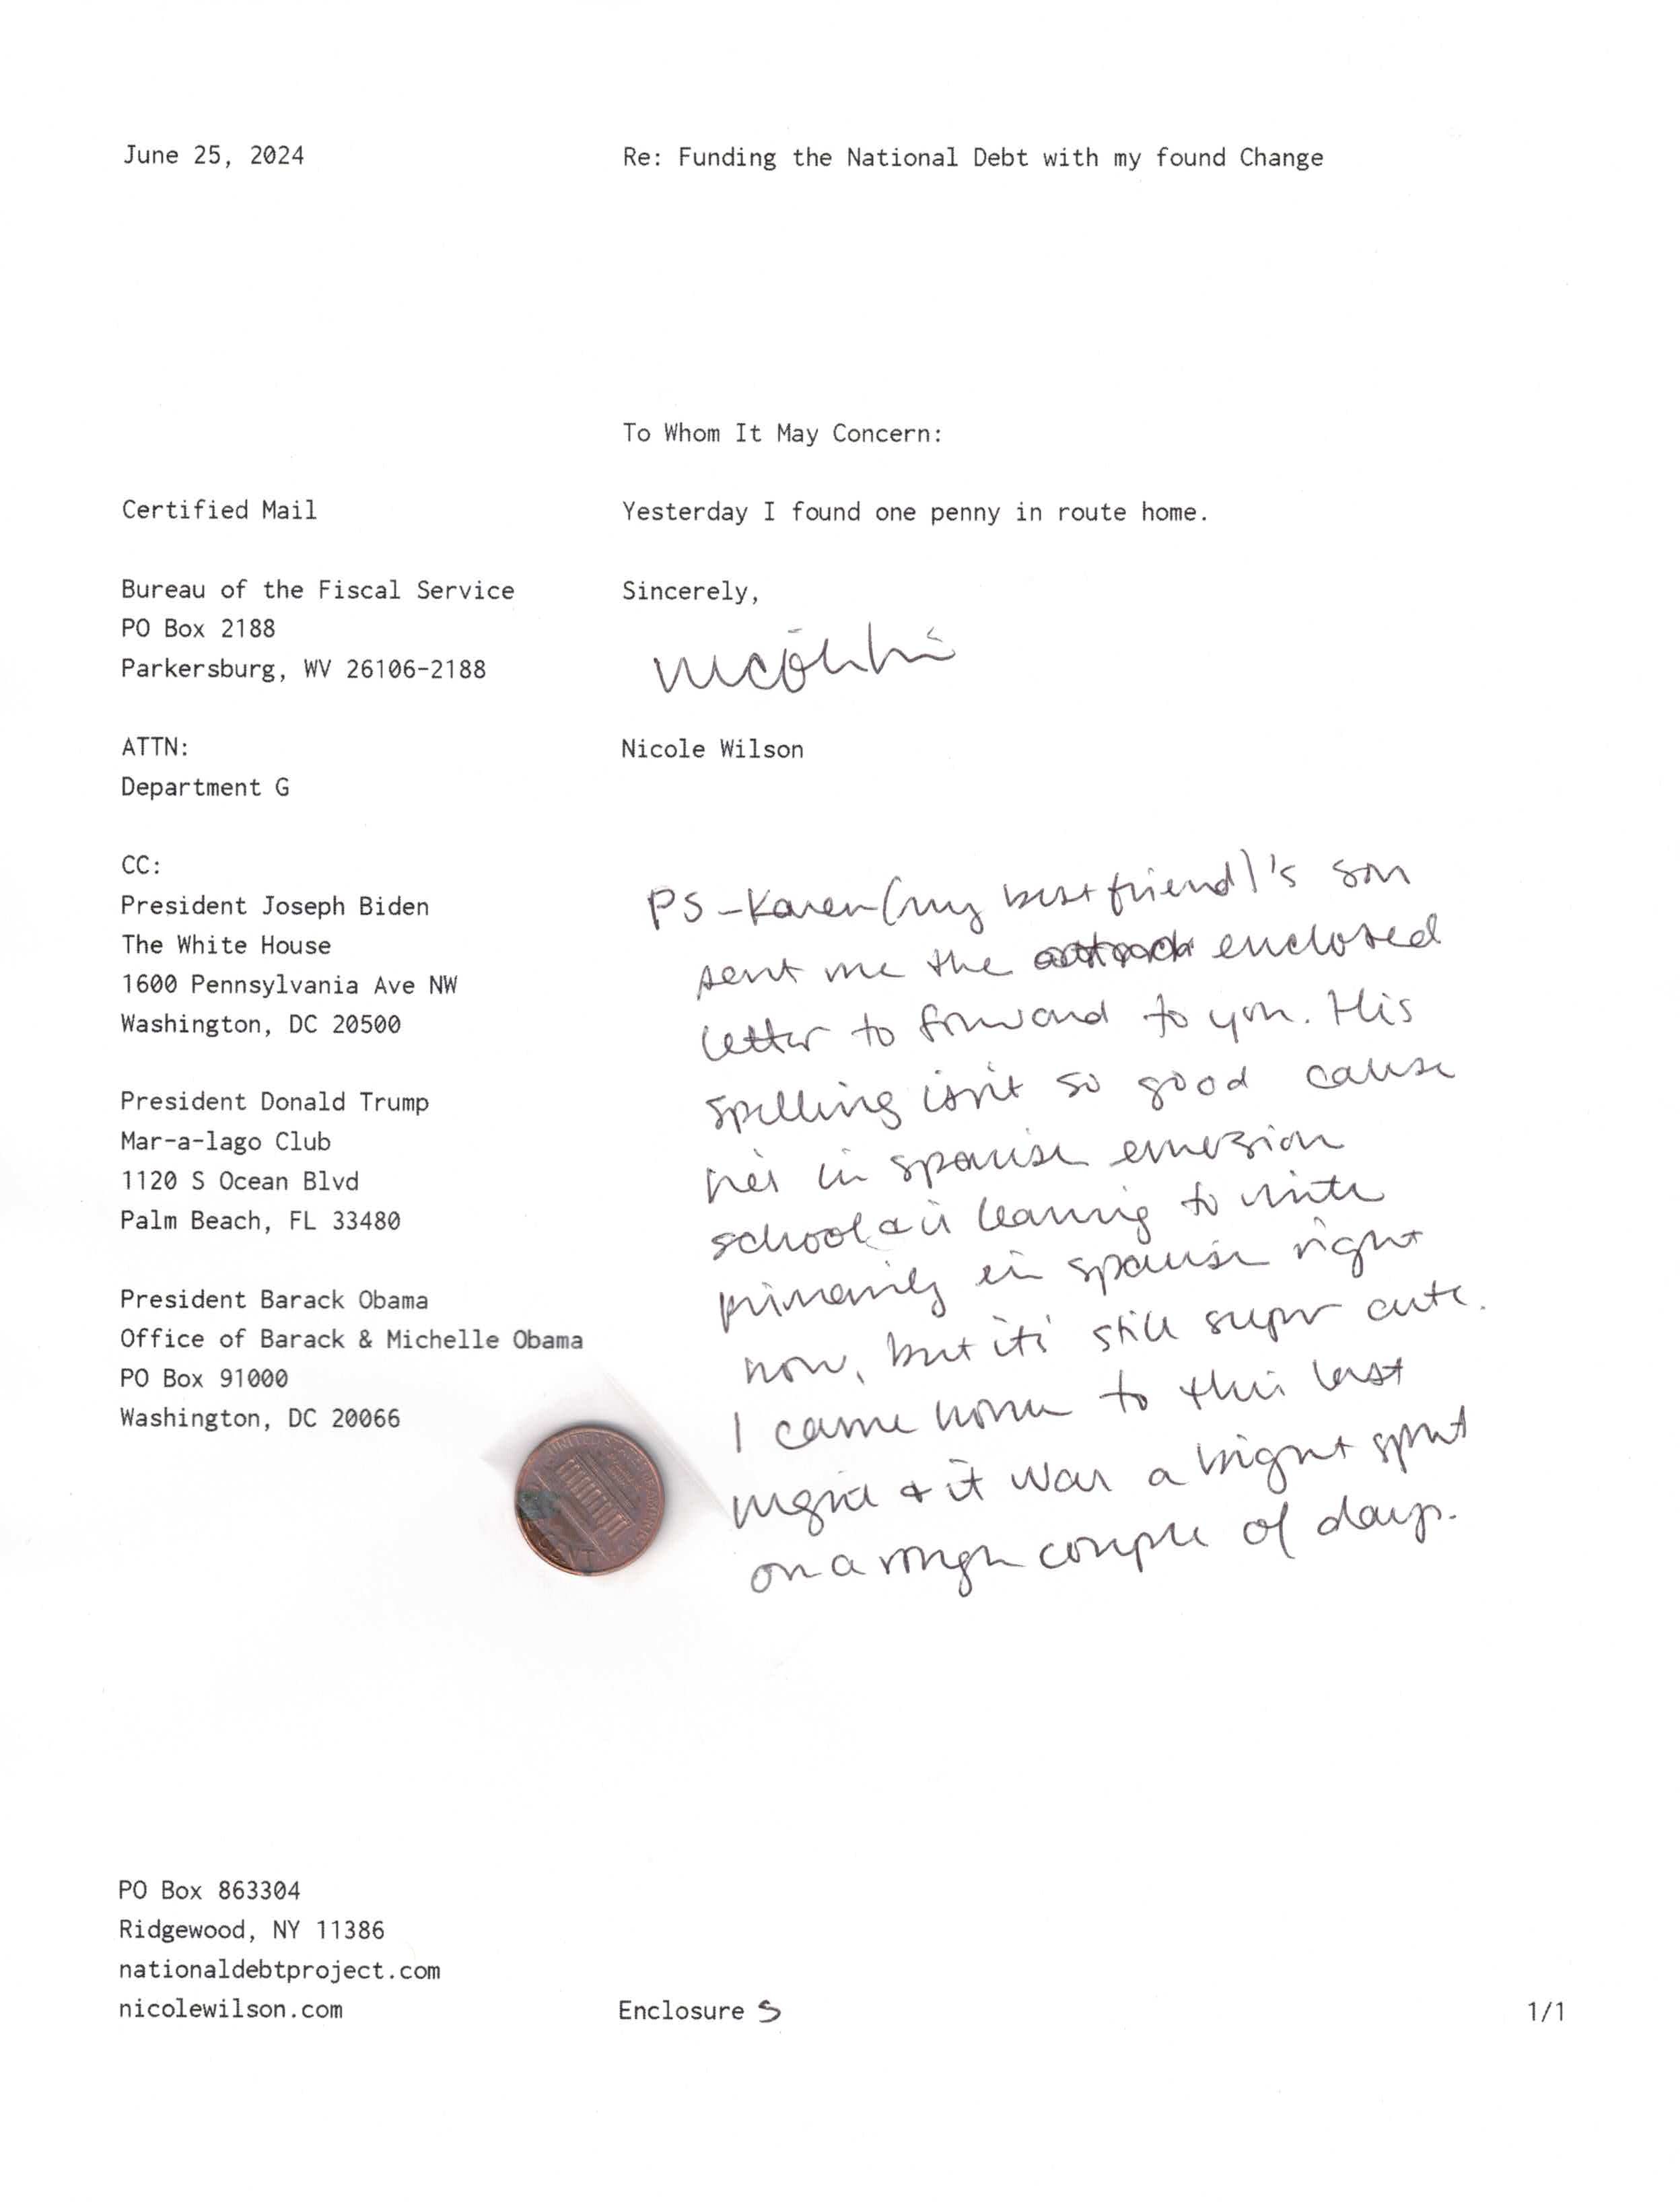 June 25, 2024
Re: Funding the National Debt with my found Change
To Whom It May Concern:
Certified Mail
Yesterday I found one penny in route home.
Bureau of the Fiscal Service
PO Box 2188
Parkersburg, WV 26106-2188
Sincerely,
ATTN:
Department G
Nicole Wilson
CC:
President Joseph Biden
The White House
1600 Pennsylvania Ave NW
Washington, DC 20500
President Donald Trump
Mar-a-lago Club
1120 S Ocean Blvd
Palm Beach, FL 33480
President Barack Obama
Office of Barack & Michelle Obama
PO Box 91000
Washington, DC 20066
PS - Karen (my best friend)'s son
sent me the enclosed
letter to forward to you. His
spelling isn't so good cause
he's in spanish emersion
school & is learning to write
primarily in spanish right
now, but it's still super cute.
I came home to this last
night & it was a bright spot
on a rough couple of days.
PO Box 863304
Ridgewood, NY 11386
nationaldebtproject.com
nicolewilson.com
Enclosure S
1/1